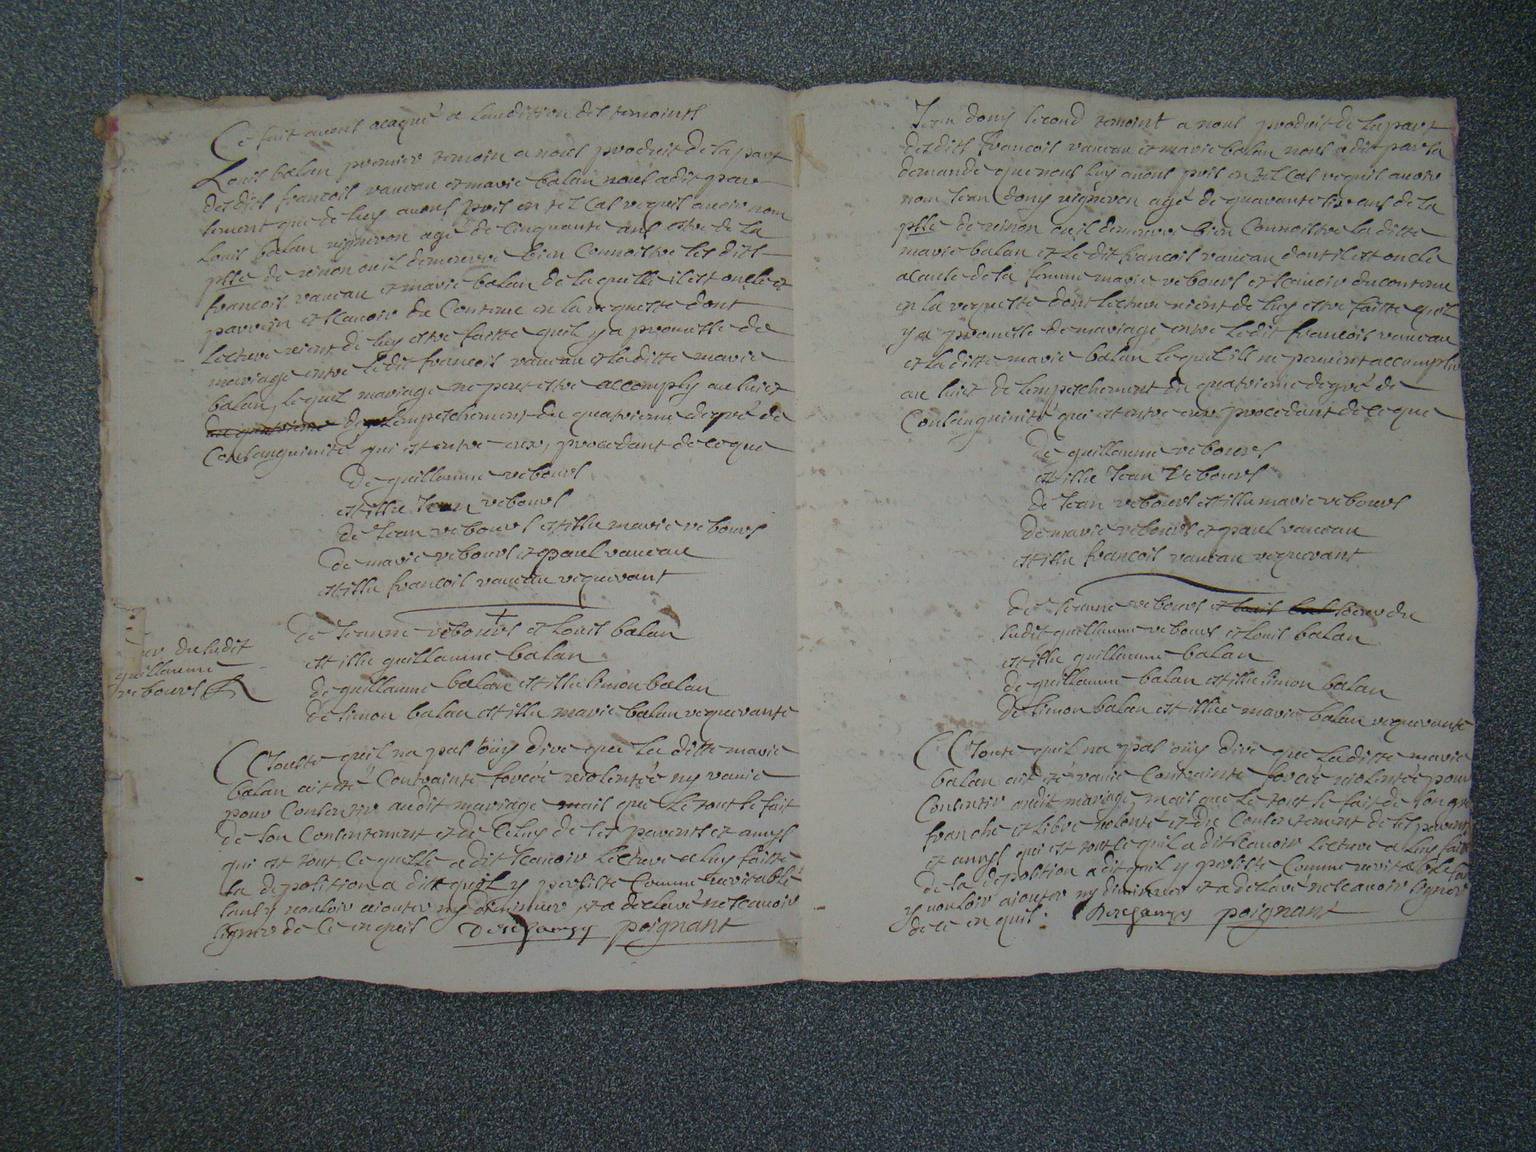 Ce fait avons vacqué a laudition des temoints
Louis balan premier temoin a nous produit de la part
des dits francois vaureau et marie balan nous a dit par
serment que de luy avons pris en tel cas requis avoir nom
Louis balan vigneron agé de cinquante ans estre de la
psse de reinon ou il demeure bien connoistre les dits
francois vaureau et marie balan de la quelle il est oncle et
parrein et scavoir du contenu en la requeste dont
lecture vient de luy estre faitte quil y a promesse de
mariage entre le dit francois vaureau et la ditte marie
balan, lequel mariage ne peut estre accomply au suiet
de lempeschement du quatrieme degré de
Consanguinité qui est entre eux, procedant de ce que
De guillaume rebours
est issu Jean rebours
de Jean rebours est issu marie rebours
de marie rebours et paul vaureau
est issu francois vaureau requerant
De Jeanne rebours et Louis balan
est issu guillaume balan
de guillaume balan est issu simon balan
de simon balan est issu marie balan requerante
du ludit
guillaume
rebours
Atteste quil na pas oüy dire que la ditte marie
balan ait été contrainte forcée violentée ny ravie
pour Consentir audit mariage mais que le tout se fait
de son Consentement et de celuy de ses parents et amys
qui est tout ce quelle a dit scavoir lecture a luy faitte
sa deposition a dit quil y persiste Comme veritable
sans y vouloir aiouter ny diminuer et a declaré ne scavoir
signer de ce enquis poignant
Jean dony second temoint a nous produit de la part
des dits francois vaureau et marie balan nous a dit par la
demande que nous luy avons pris en tel cas requis avoir
nom Jean dony vigneron agé de quarante six ans de la
psse de reinon ou il demeure bien Connoistre la ditte
marie balan et le dit francois vaureau dont il est oncle
a cause de sa femme marie rebours et scavoir du contenu
en la requeste dont lecture vient de luy estre faitte quil
y a promesse de mariage entre le dit francois vaureau
et la ditte marie balan lequel ils ne peuvent accomplir
au suiet de lempeschement du quatrieme degré de
Consanguinité qui est entre eux procedant de ce que
De guillaume rebours
est issu Jean rebours
de Jean rebours est issu marie rebours
de marie rebours et paul vaureau
est issu francois vaureau requerant
De Jeanne rebours soeur du
ludit guillaume rebours et Louis balan
est issu guillaume balan
de guillaume balan est issu simon balan
de simon balan est issue marie balan requerante
Atteste quil na pas oüy dire que la ditte marie
balan ait été ravie Contrainte forcée violentée pour
Consentir audit mariage mais que le tout se fait de son gré
franche et libre volonté et du Consentement de ses parents
et amys qui est tout ce quil a dit scavoir lecture a luy faitte
de sa deposition a dit quil y persiste Comme veritable sans
y vouloir aiouter ny diminuer et a declaré ne scavoir signer
de ce enquis. poignant